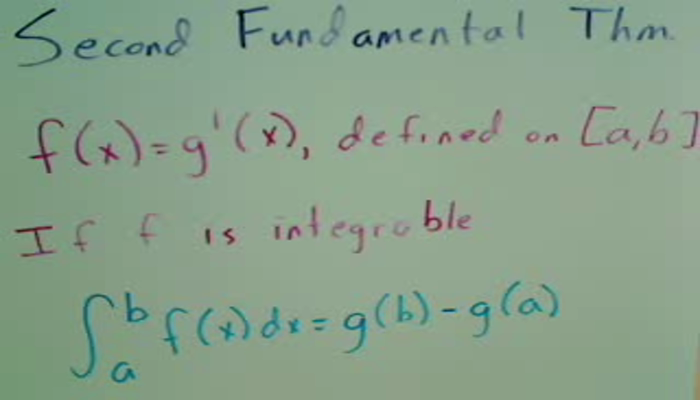 Second Fundamental Thm.
f(x)=g'(x), defined on [a,b]
If f is integrable
∫ₐᵇ f(x)dx=g(b)-g(a)